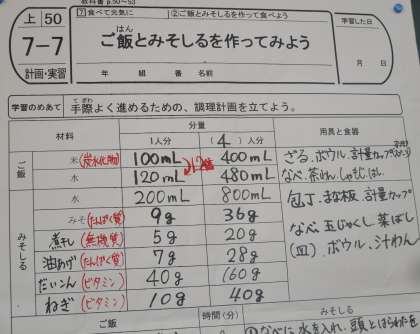 教科書 p.50～53
上 50 7 食べて元気に ②ご飯とみそしるを作って食べよう
7-7
計画・実習
はん
ご飯とみそしるを作ってみよう
年 組 番 名前
学習した日
月 日
学習のめあて 手際よく進めるための、調理計画を立てよう。
材料 分量 用具と食器
1人分 (4)人分
ご飯 米(炭水化物) 100mL 400mL
水 120mL 480mL
1.2倍
ざる、ボウル、計量カップ
なべ、茶わん、しゃもじ、はし
みそしる 水 200mL 800mL
みそ(たんぱく質) 9g 36g
煮干し(無機質) 5g 20g
油あげ(たんぱく質) 7g 28g
だいこん(ビタミン) 40g 160g
ねぎ(ビタミン) 10g 40g
包丁、まな板、計量カップ
なべ、玉じゃくし、菜ばし
(皿)、ボウル、汁わん
ご飯 時間(分) みそしる
①なべに水を入れ、頭とはらわたを